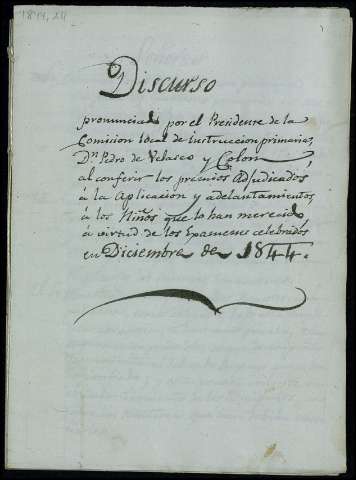 1844, 24
Discurso
pronunciado por el Presidente de la
Comision local de instruccion primaria,
Dn. Pedro de Velasco y Colon,
al conferir los premios Adjudicados
à la Aplicacion y adelantamientos,
à los Niños que lo han merecido
à virtud de los Examenes celebrados
en Diciembre de 1844.